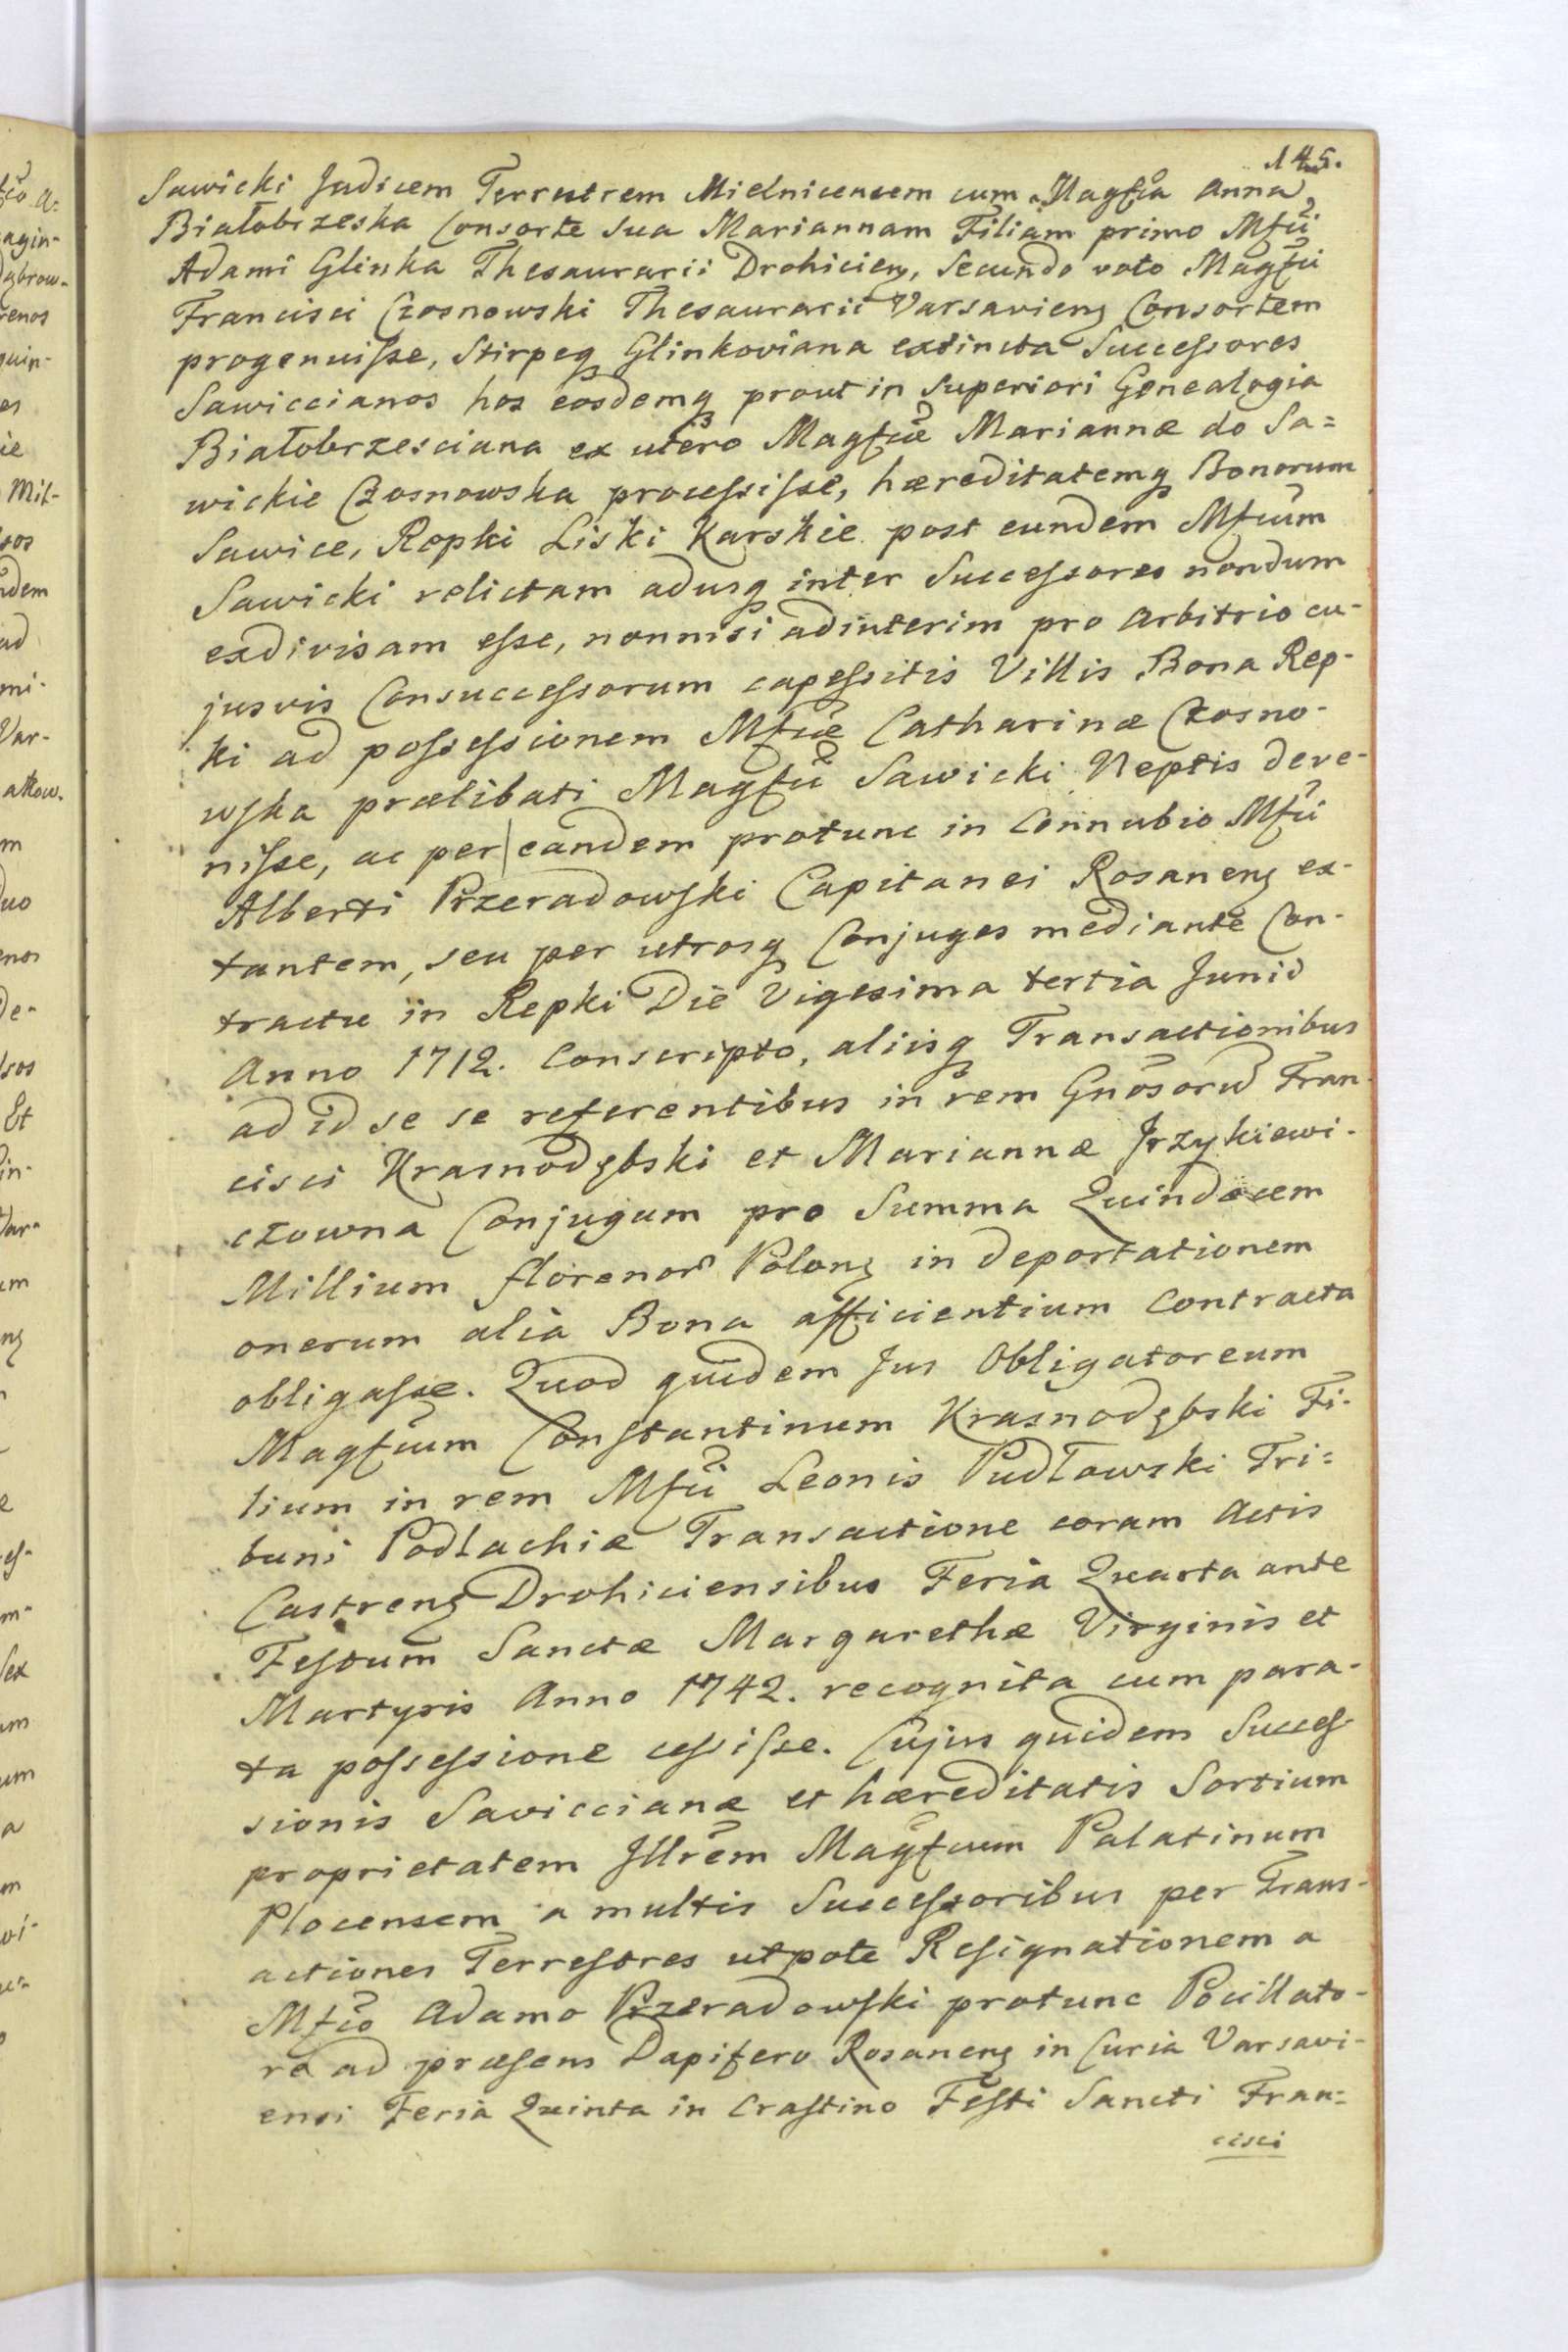 145.
Sawicki Judicem Terrestrem Mielnicensem cum Magfca Anna
Białobrzeska Consorte Sua Mariannam Filiam primo Mfci
Adami Glinka Thesaurarii Drohicien, Secundo voto Magfci
Francisci Czosnowski Thesaurarii Varsavien Consortem
progenuisse, Stirpeq Glinkoviana extincta Successores
Sawiccianos hos eosdemq prout in Superiori Genealogia
Białobrzesciana ex utero Magfcæ Mariannæ de Sa=
wickie Czosnowska processisse, hæreditatemq Bonorum
Sawice, Repki Liski Karskie post eundem Mfcum
Sawicki relictam adusq inter Successores nondum
exdivisam esse, nonnisi adinterim pro arbitrio cu-
jusvis Consuccessorum capessitis Villis Bona Rep-
ki ad possessionem Mfcæ Catharinæ Czosno-
wska prælibati Magfci Sawicki Neptis deve-
nisse, ac per eandem protunc in Connubio Mfci
Alberti Przeradowski Capitanei Rosanens ex-
tantem, seu per utrosq Conjuges mediante Con-
tractu in Repki Die Vigesima tertia Junii
Anno 1712. Conscripto, aliisq Transactionibus
ad id se se referentibus in rem Gnosorum Fran-
cisci Krasnodębski et Mariannæ Jrzykiewi-
czowna Conjugum pro Summa Quindecem
Millium florenor Polons in deportationem
onerum alia Bona afficientium Contracta
obligasse. Quod quidem Jus Obligatoreum
Magfcum Constantinum Krasnodębski Fi-
lium in rem Mfci Leonis Pudłowski Tri=
buni Podlachiæ Transactione coram Actis
Castrens Drohiciensibus Feria Quarta ante
Festum Sanctæ Margarethæ Virginis et
Martyris Anno 1742. recognita cum para-
ta possessione cessisse. Cujus quidem Succes-
sionis Savicianæ et hæreditatis Sortium
proprietatem Jllrem Magfcum Palatinum
Plocensem a multis Successoribus per Trans-
actiones Terrestres utpote Resignationem a
Mfco Adamo Przeradowski protunc Pocillato-
re ad præsens Dapifero Rosanens in Curia Varsavi-
ensi Feria Quinta in Crastino Festi Sancti Fran=
cisci